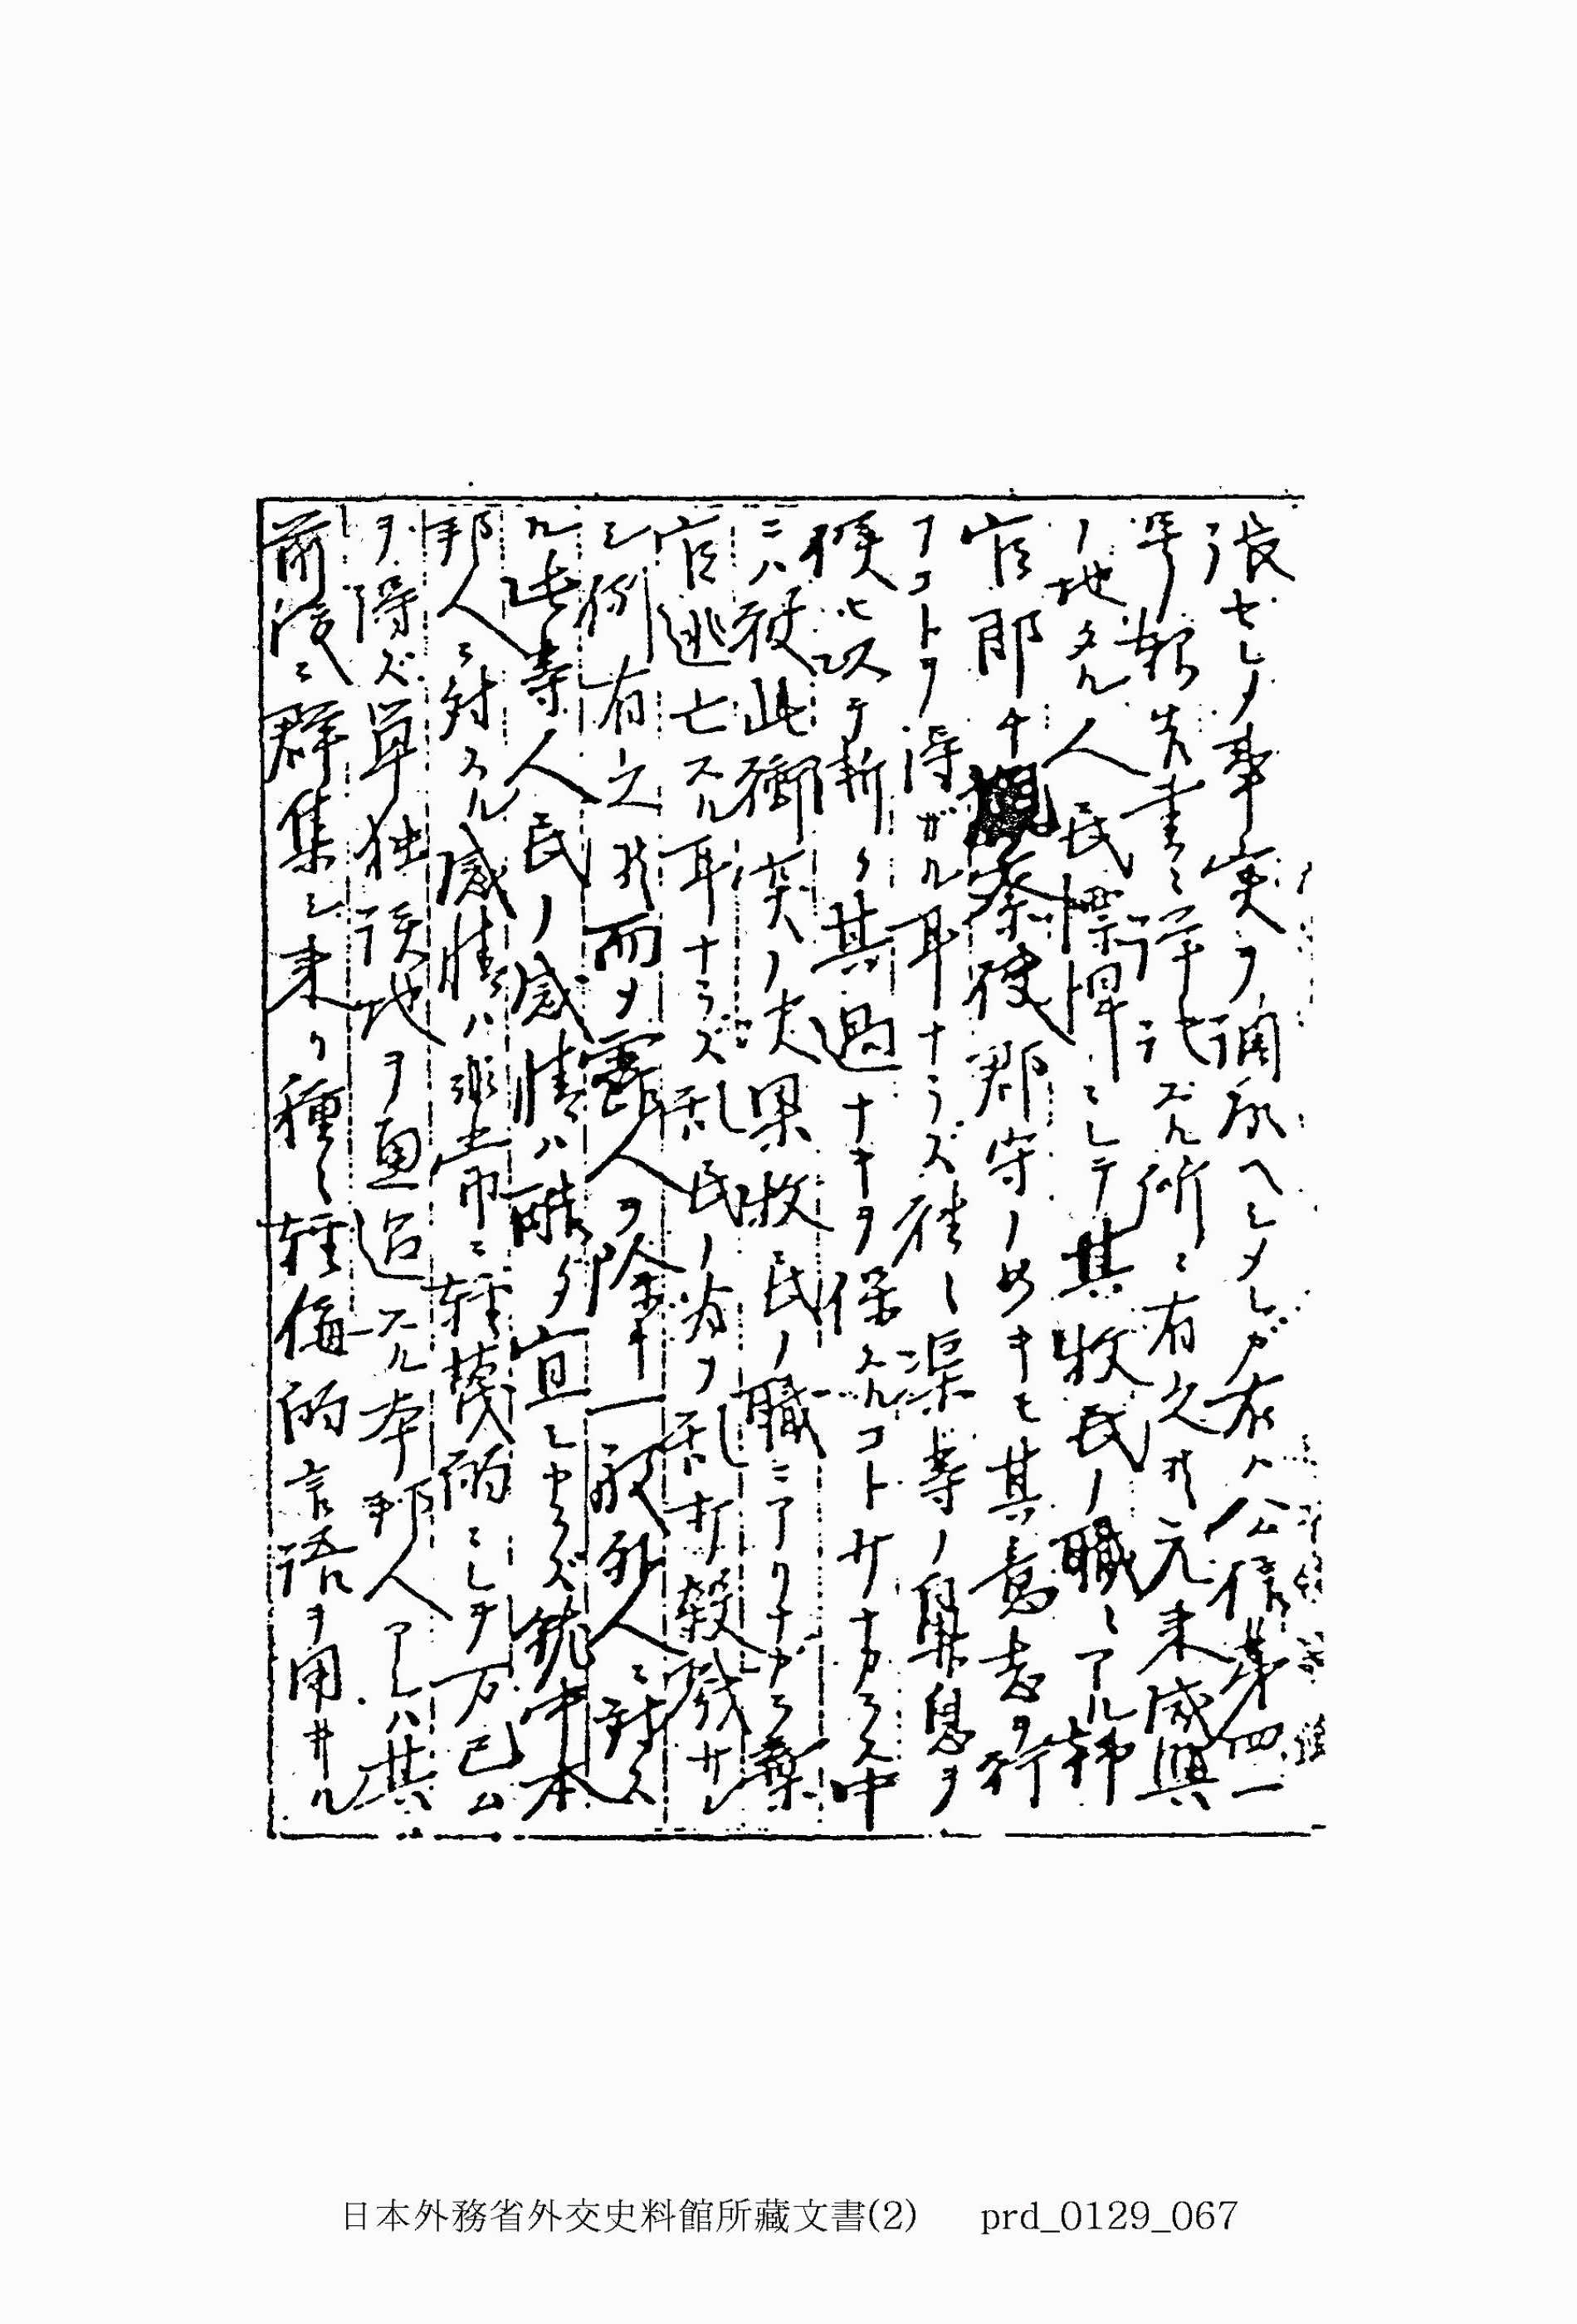 張セシノ事実ヲ確承ヘシメシガ右ハ公信第四一
号報告書ニ詳記スル所ニ有之候元来咸興
ノ地タル人民慓悍ニシテ其牧民ノ職ニアル韓
官即チ観察使郡守ノ如キモ其意志ヲ行
フコトヲ得ザル耳ナラズ往々渠等ノ鼻息ヲ
候ヒ以テ漸ク其過ナキヲ保スルコト少ナカラス中
ニハ彼此衝突ノ末果牧民ノ職ニアリナガラ棄
官逃亡スル耳ナラズ乱民ノ為ノ乱打殺戮サレ
シ例有之候而メ露人ヲ除キ一般外人ニ対ス
ル此等人民ノ感情ハ醜夕宜シカラズ就中本
邦人ニ対スル感情ハ非常ニ軽蔑的ニシテ万已ム
ヲ得ズ単独該地ヲ通過スル本邦人アレハ其
前後ニ群集シ来リ種々軽侮的言語ヲ用ヰル
日本外務省外交史料館所藏文書(2) prd_0129_067